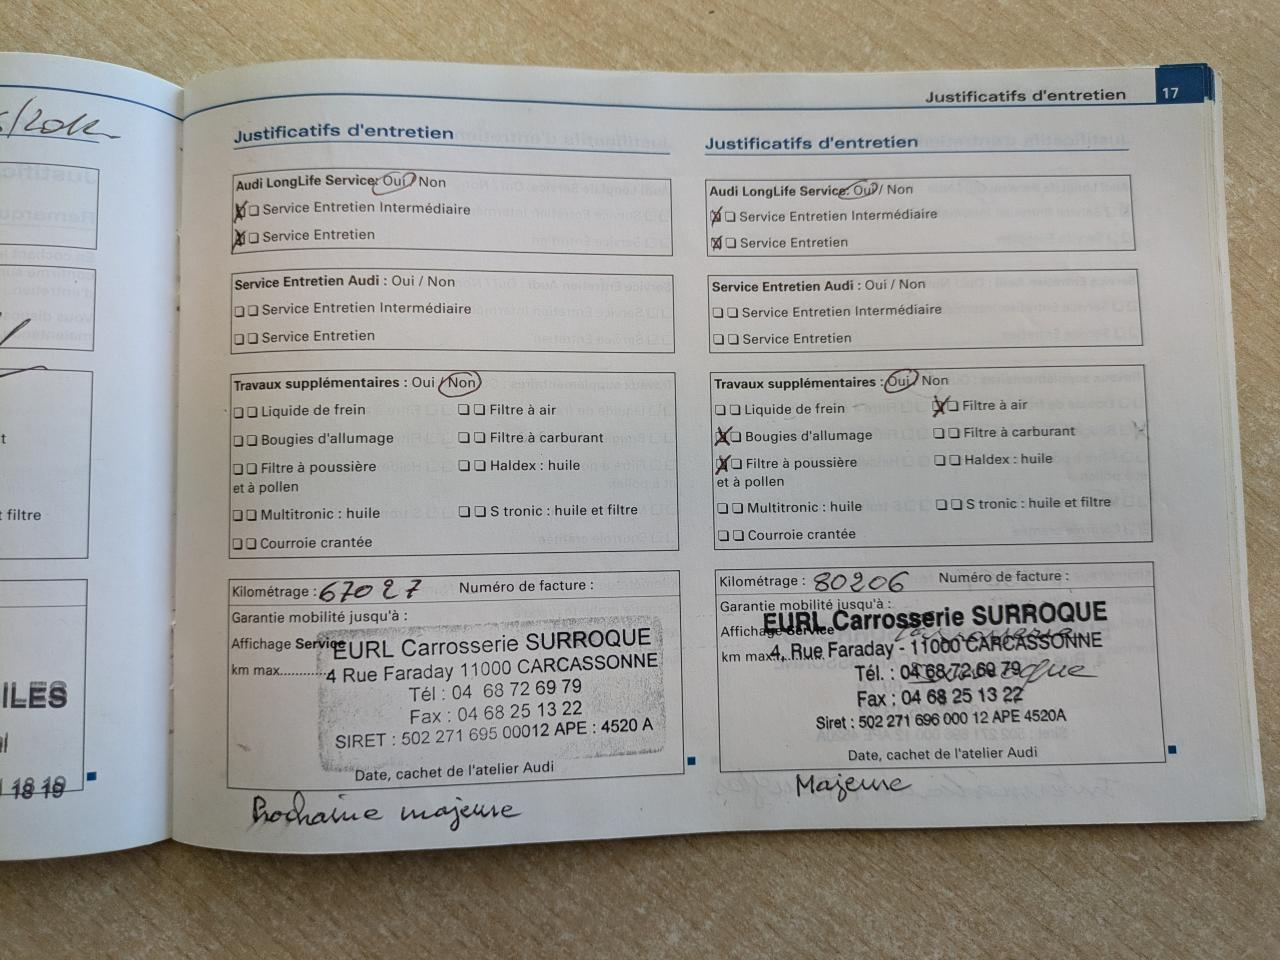 Justificatifs d'entretien 17
t
et filtre
ILES
18 19
Justificatifs d'entretien
Audi LongLife Service: Oui / Non
❏ ❏ Service Entretien Intermédiaire
❏ ❏ Service Entretien
Service Entretien Audi : Oui / Non
❏ ❏ Service Entretien Intermédiaire
❏ ❏ Service Entretien
Travaux supplémentaires : Oui / Non
❏ ❏ Liquide de frein ❏ ❏ Filtre à air
❏ ❏ Bougies d'allumage ❏ ❏ Filtre à carburant
❏ ❏ Filtre à poussière ❏ ❏ Haldex : huile
et à pollen
❏ ❏ Multitronic : huile ❏ ❏ S tronic : huile et filtre
❏ ❏ Courroie crantée
Kilométrage : 67027 Numéro de facture :
Garantie mobilité jusqu'à :
Affichage Service
km max............
EURL Carrosserie SURROQUE
4 Rue Faraday 11000 CARCASSONNE
Tél : 04 68 72 69 79
Fax : 04 68 25 13 22
SIRET : 502 271 695 00012 APE : 4520 A
Date, cachet de l'atelier Audi
Prochaine majeure
Justificatifs d'entretien
Audi LongLife Service: Oui / Non
❏ ❏ Service Entretien Intermédiaire
❏ ❏ Service Entretien
Service Entretien Audi : Oui / Non
❏ ❏ Service Entretien Intermédiaire
❏ ❏ Service Entretien
Travaux supplémentaires : Oui / Non
❏ ❏ Liquide de frein ❏ ❏ Filtre à air
❏ ❏ Bougies d'allumage ❏ ❏ Filtre à carburant
❏ ❏ Filtre à poussière ❏ ❏ Haldex : huile
et à pollen
❏ ❏ Multitronic : huile ❏ ❏ S tronic : huile et filtre
❏ ❏ Courroie crantée
Kilométrage : 80206 Numéro de facture :
Garantie mobilité jusqu'à :
Affichage Service
km max
EURL Carrosserie SURROQUE
4, Rue Faraday - 11000 CARCASSONNE
Tél. : 04 68 72 69 79
Fax : 04 68 25 13 22
Siret : 502 271 696 000 12 APE 4520A
Carrosserie
Surroque
Date, cachet de l'atelier Audi
Majeure